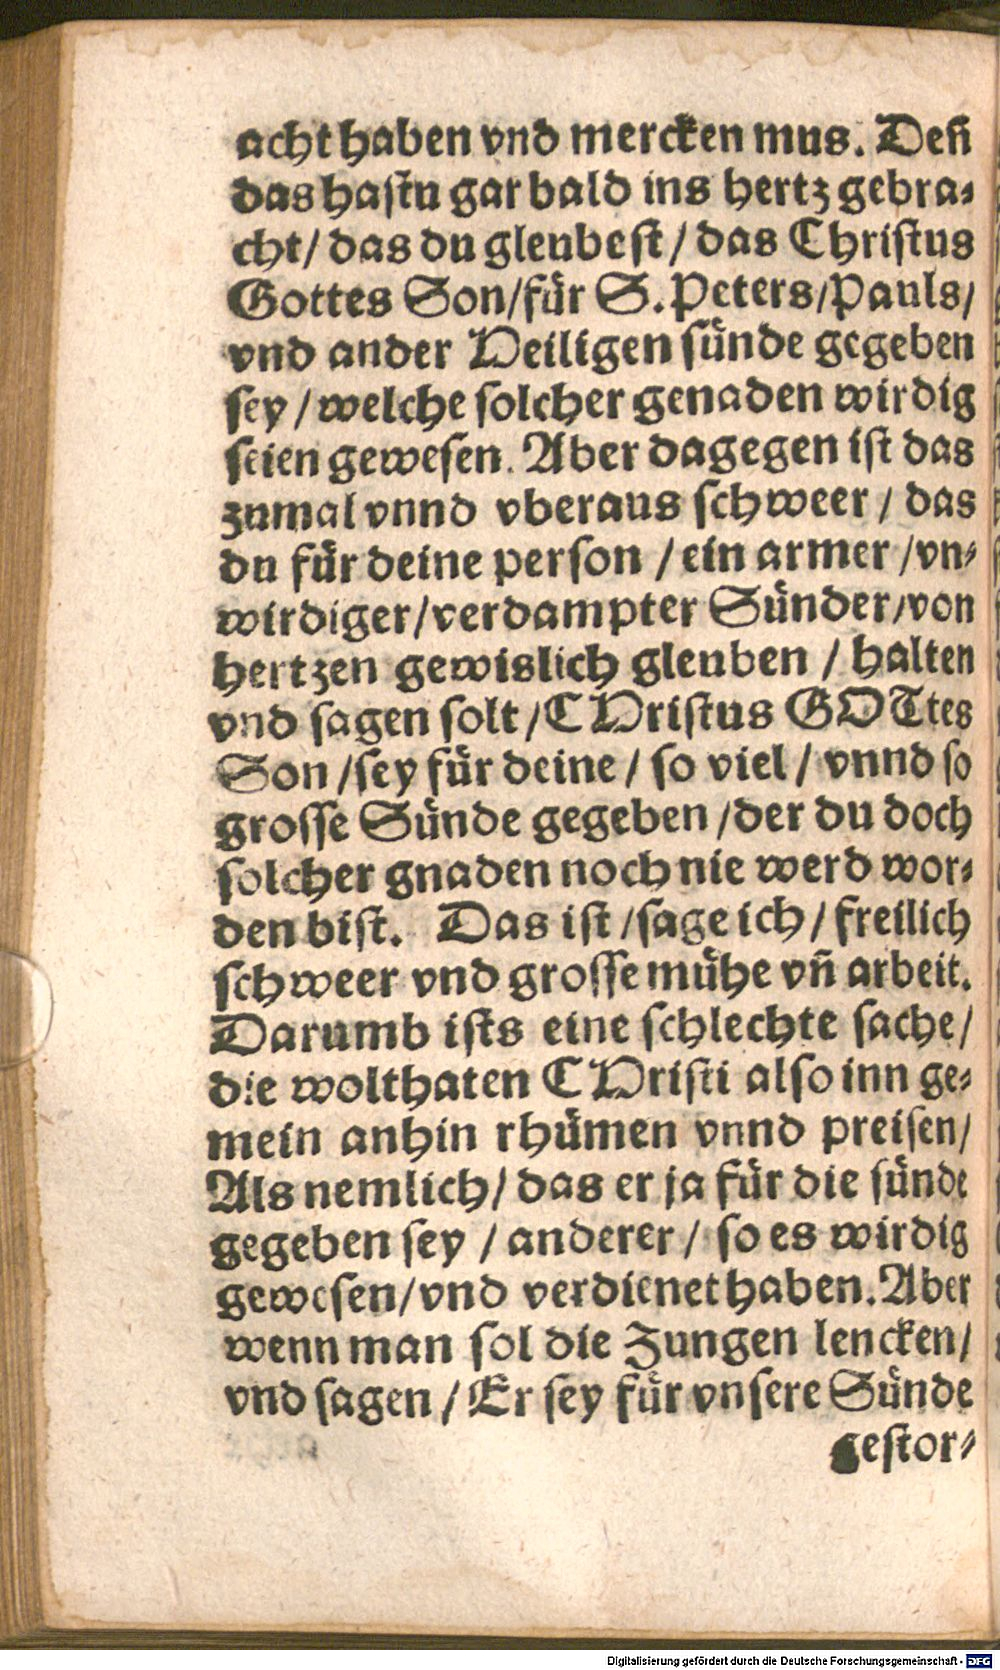 acht haben vnd mercken mus. Deñ
das hastu gar bald ins hertz gebra⸗
cht/ das du gleubest/ das Christus
Gottes Son/für S. Peters/Pauls/
vnd ander Heiligen sünde gegeben
sey/welche solcher genaden wirdig
seien gewesen. Aber dagegen ist das
zumal vnnd vberaus schweer/ das
du für deine person/ein armer/vn⸗
wirdiger/verdampter Sünder/von
hertzen gewislich gleuben/halten
vnd sagen solt/CHristus GOTtes
Son/sey für deine/ so viel/ vnnd so
grosse Sünde gegeben/der du doch
solcher gnaden noch nie werd wor⸗
den bist. Das ist/sage ich/freilich
schweer vnd grosse mühe vñ arbeit.
Darumb ists eine schlechte sache/
die wolthaten CHristi also inn ge⸗
mein anhin rhümen vnnd preisen/
Als nemlich/das er ja für die sünde
gegeben sey/anderer/ so es wirdig
gewesen/vnd verdienet haben. Aber
wenn man sol die Zungen lencken/
vnd sagen/Er sey für vnsere Sünde
gestor⸗
Digitalisierung gefördert durch die Deutsche Forschungsgemeinschaft - DFG